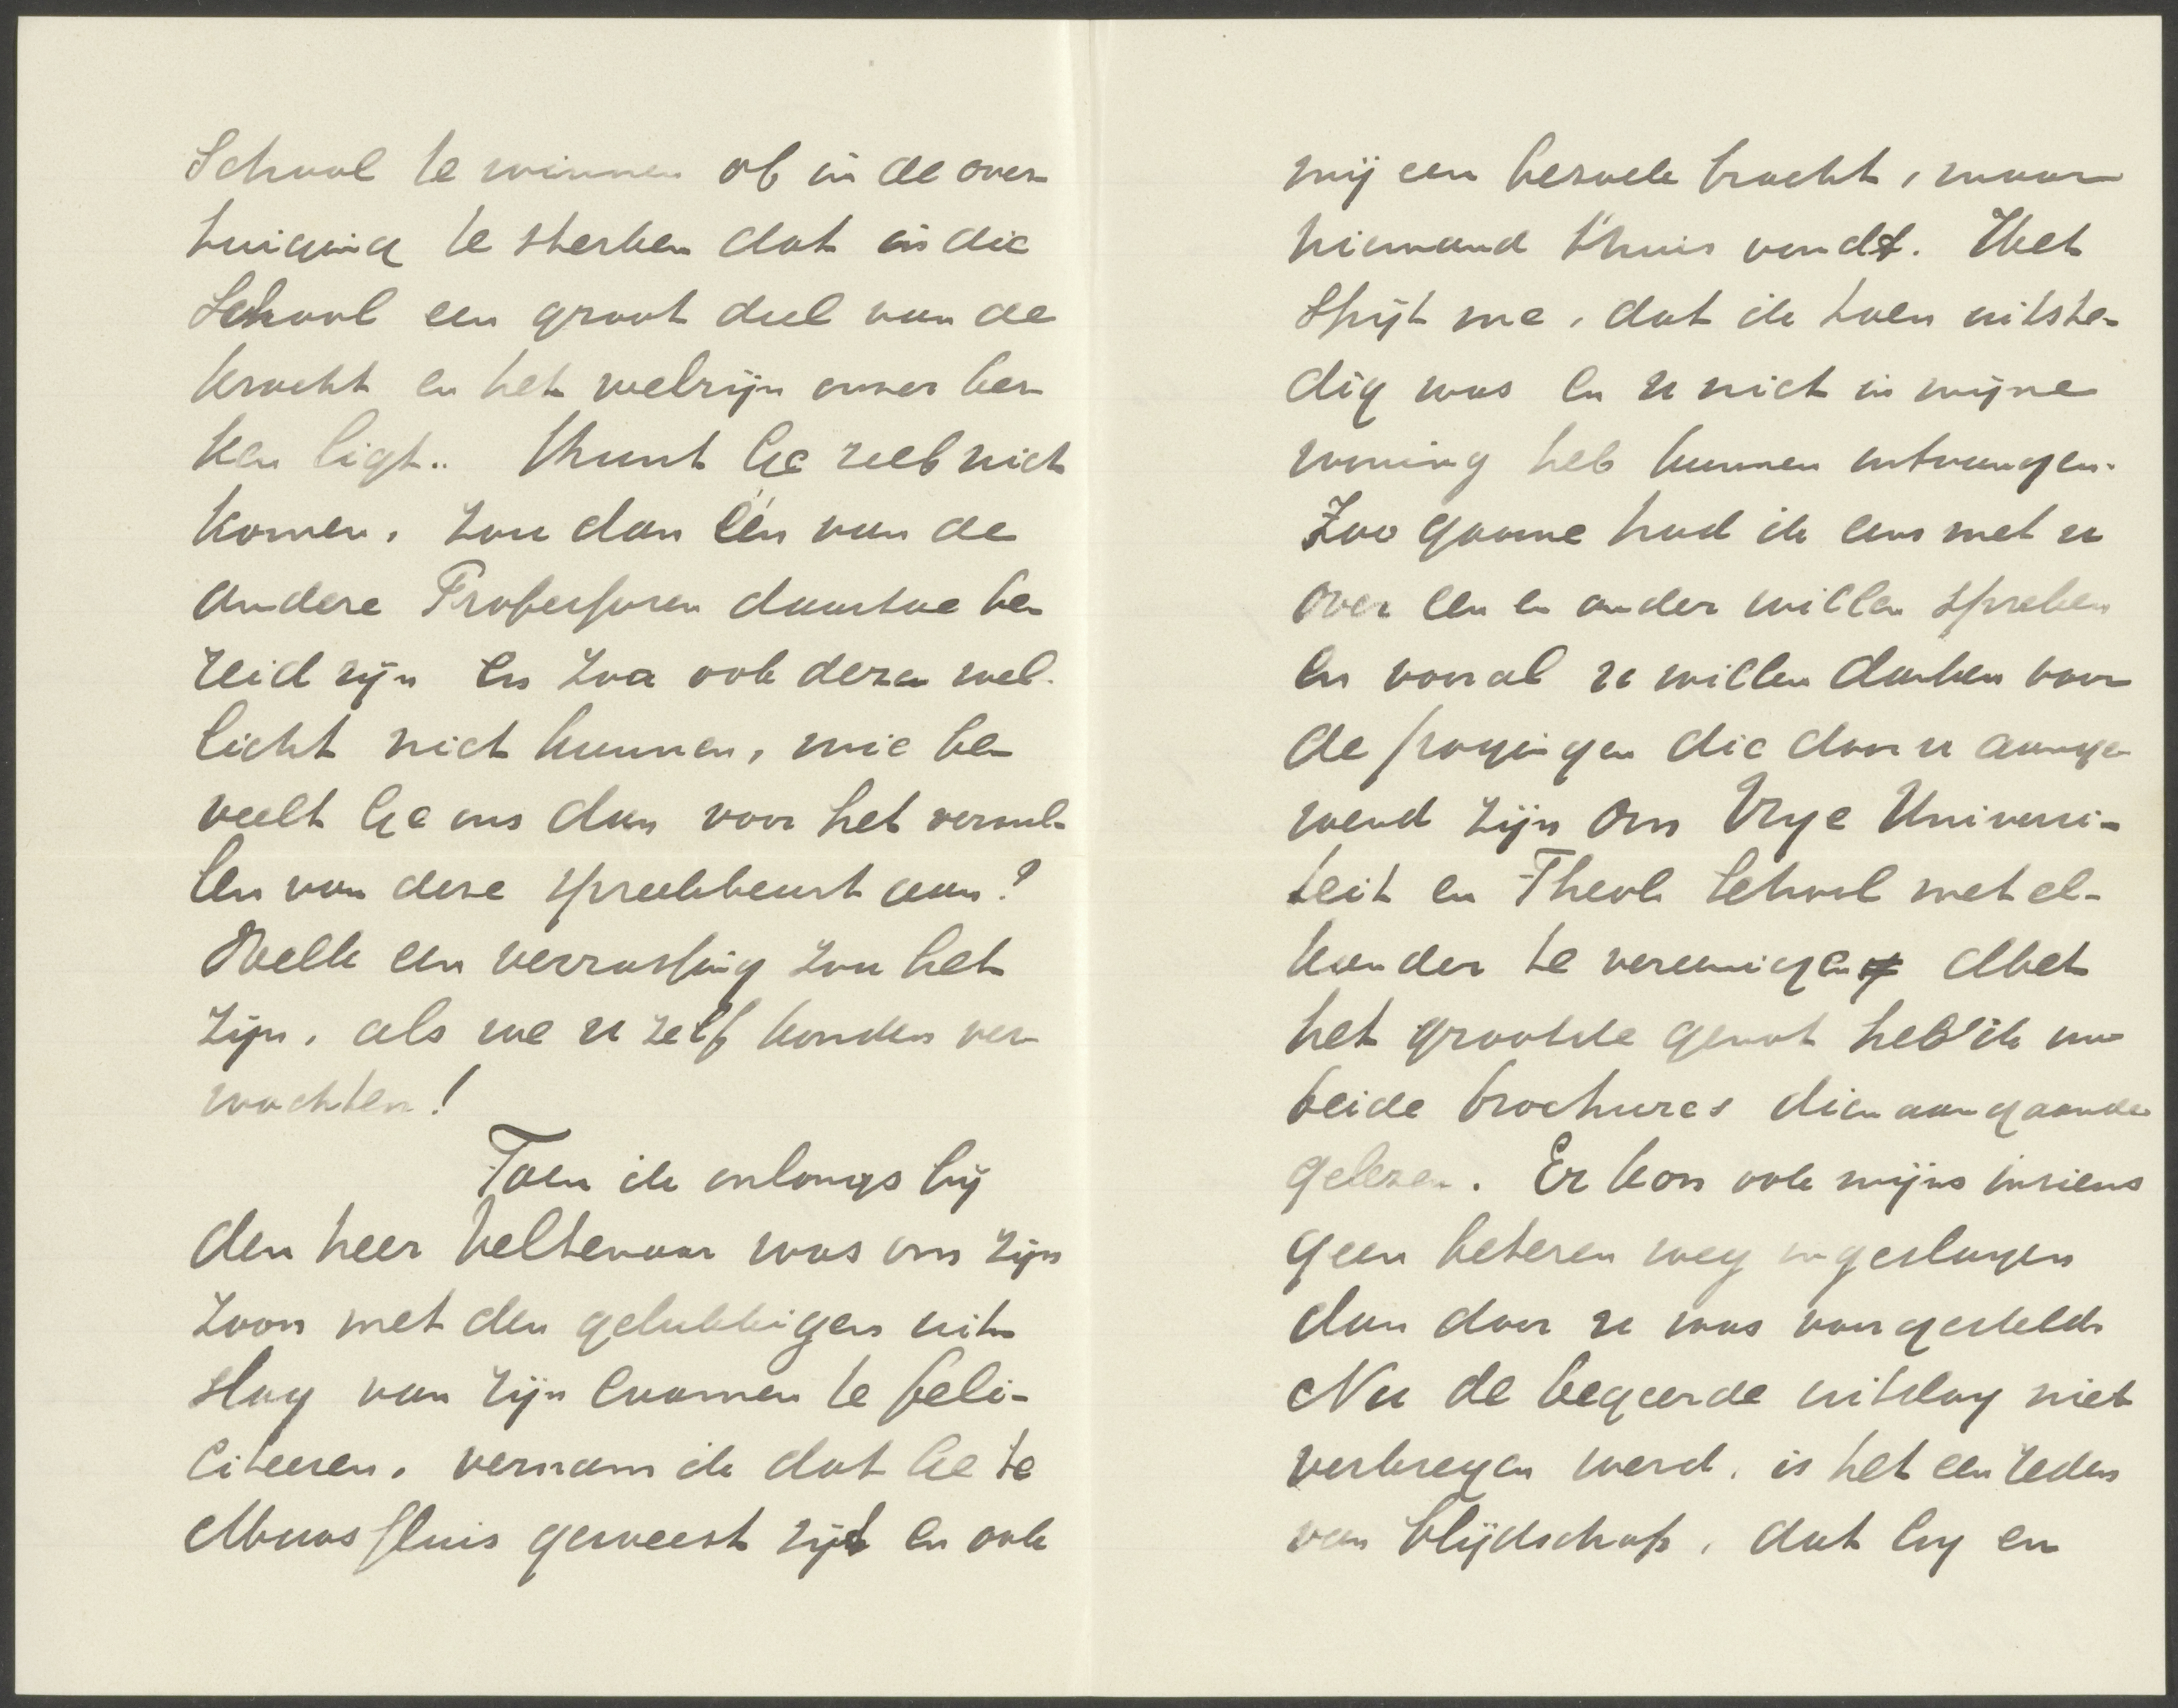 School te winnen of in de over-
tuiging te sterken dat in die
School een groot deel van de
kracht en het welzijn onzer ker-
ken ligt.. Kunt Ge zelf niet
komen, zou dan één van de
andere Professoren daartoe be-
reid zijn en zoo ook deze wel-
licht niet kunnen, wie be-
veelt Ge ons dan voor het vervul-
len van deze spreekbeurt aan?
Welk een verrassing zou het
zijn, als we u zelf konden ver-
wachten!
Toen ik onlangs bij
den heer Keltenaar was om zijn
zoon met den gelukkigen uit-
slag van zijn examen te feli-
citeeren, vernam ik dat Ge te
Maassluis geweest zijt en ook
mij een bezoek bracht, maar
niemand t'huis vondt. Het
spijt me, dat ik toen uitste-
dig was en u niet in mijne
woning heb kunnen ontvangen.
Zoo gaarne had ik eens met u
over een en ander willen spreken
en vooral u willen danken voor
de pogingen die door u aange-
wend zijn om Vrye Universi-
teit en Theol. School met el-
kander te vereenigen Met
het grootste genot heb ik uw
beide brochures dienaangaande
gelezen. Er kon ook mijns inziens
geen beteren weg ingeslagen
dan door u was voorgesteld.
Nu de begeerde uitslag niet
verkregen werd, is het een reden
van blijdschap, dat bij en